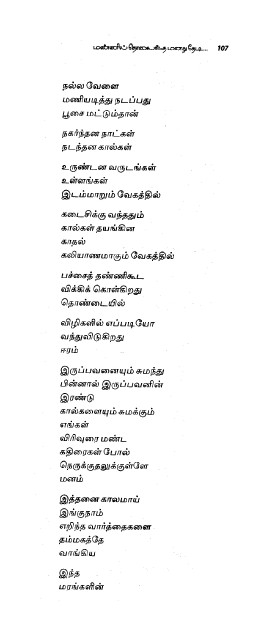 மண்ணில் தொலைந்த மனது தேடி... 107
நல்ல வேளை
மணியடித்து நடப்பது
பூசை மட்டும்தான்
நகர்ந்தன நாட்கள்
நடந்தன கால்கள்
உருண்டன வருடங்கள்
உள்ளங்கள்
இடம்மாறும் வேகத்தில்
கடைசிக்கு வந்ததும்
கால்கள் தயங்கின
காதல்
கலியாணமாகும் வேகத்தில்
பச்சைத் தண்ணிகூட
விக்கிக் கொள்கிறது
தொண்டையில்
விழிகளில் எப்படியோ
வந்துவிடுகிறது
ஈரம்
இருப்பவனையும் சுமந்து
பின்னால் இருப்பவனின்
இரண்டு
கால்களையும் சுமக்கும்
எங்கள்
விரிவுரை மண்ட
கதிரைகள் போல்
நெருக்குதலுக்குள்ளே
மனம்
இத்தனை காலமாய்
இங்குநாம்
எறிந்த வார்த்தைகளை
தம்மகத்தே
வாங்கிய
இந்த
மரங்களின்